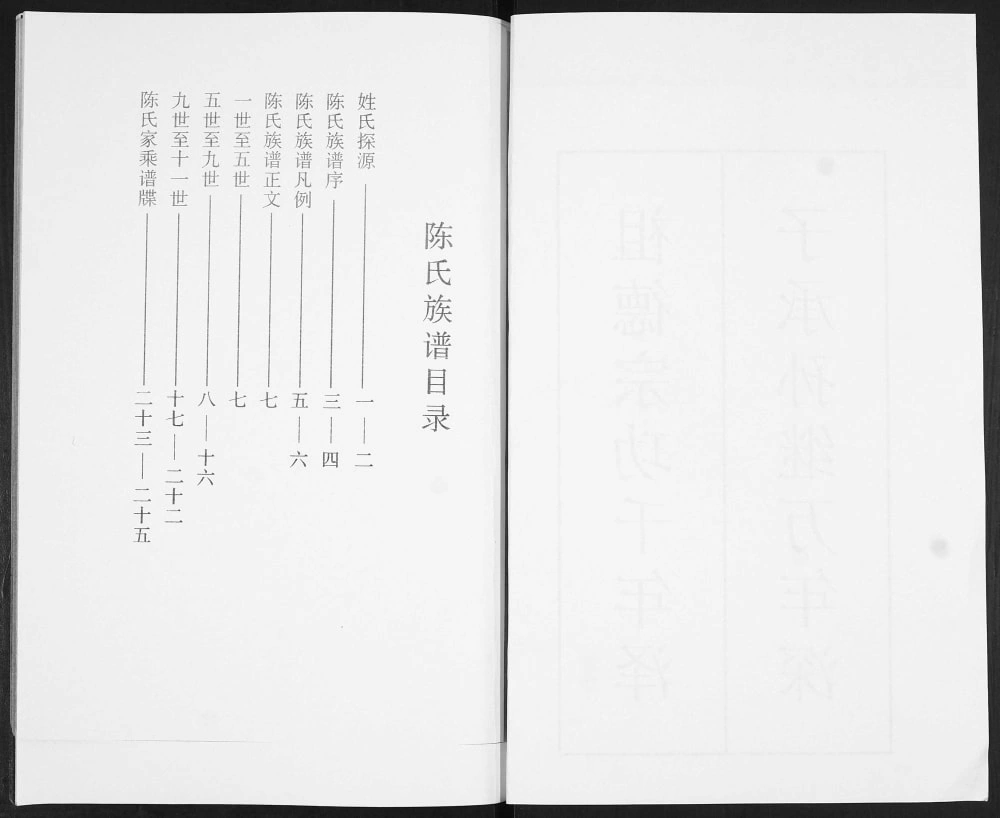 陈氏族谱目录
姓氏探源——一—二
陈氏族谱序——三—四
陈氏族谱凡例——五—六
陈氏族谱正文——七
一世至五世——七
五世至九世——八—十六
九世至十一世——十七—二十二
陈氏家乘谱牒——二十三—二十五
祖德宗功千年泽
子承孙继万年深